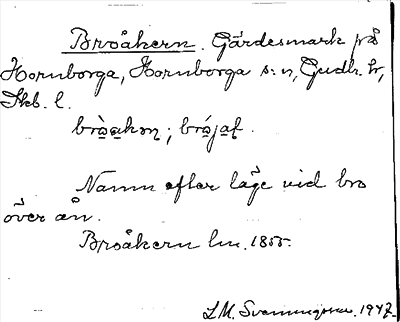 Broåkern. Gärdesmark på
Hornborga, Hornborga s:n, Gudh. hr,
Skb. l.
bròakən; brójaf.
Namn efter läge vid bro
över ån.
Broåkern lm. 1855.
L.M. Svenungsson. 1947.